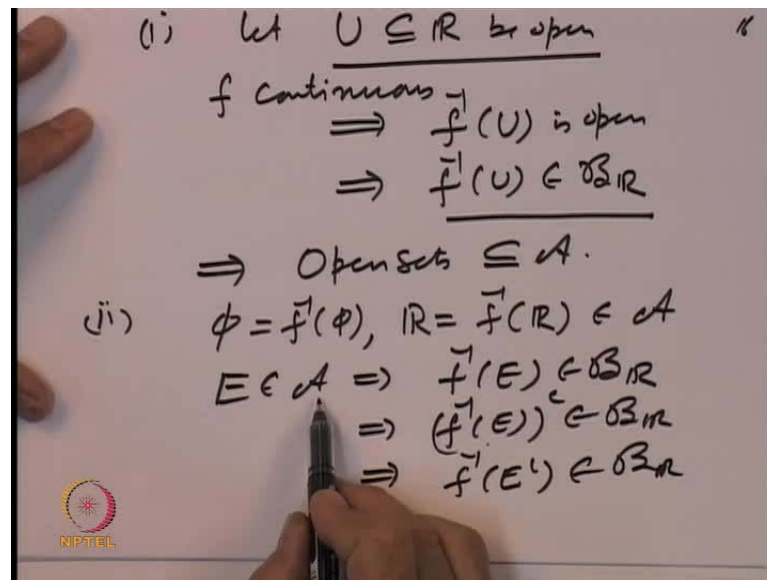 (i) let U ⊆ ℝ be open 18
f continuous
⟹ f⁻¹(U) is open
⟹ f⁻¹(U) ∈ 𝓑ℝ
⟹ Open sets ⊆ 𝒜.
(ii) ϕ = f⁻¹(ϕ), ℝ = f⁻¹(ℝ) ∈ 𝒜
E ∈ 𝒜 ⟹ f⁻¹(E) ∈ 𝓑ℝ
⟹ (f⁻¹(E))ᶜ ∈ 𝓑ℝ
⟹ f⁻¹(Eᶜ) ∈ 𝓑ℝ
NPTEL